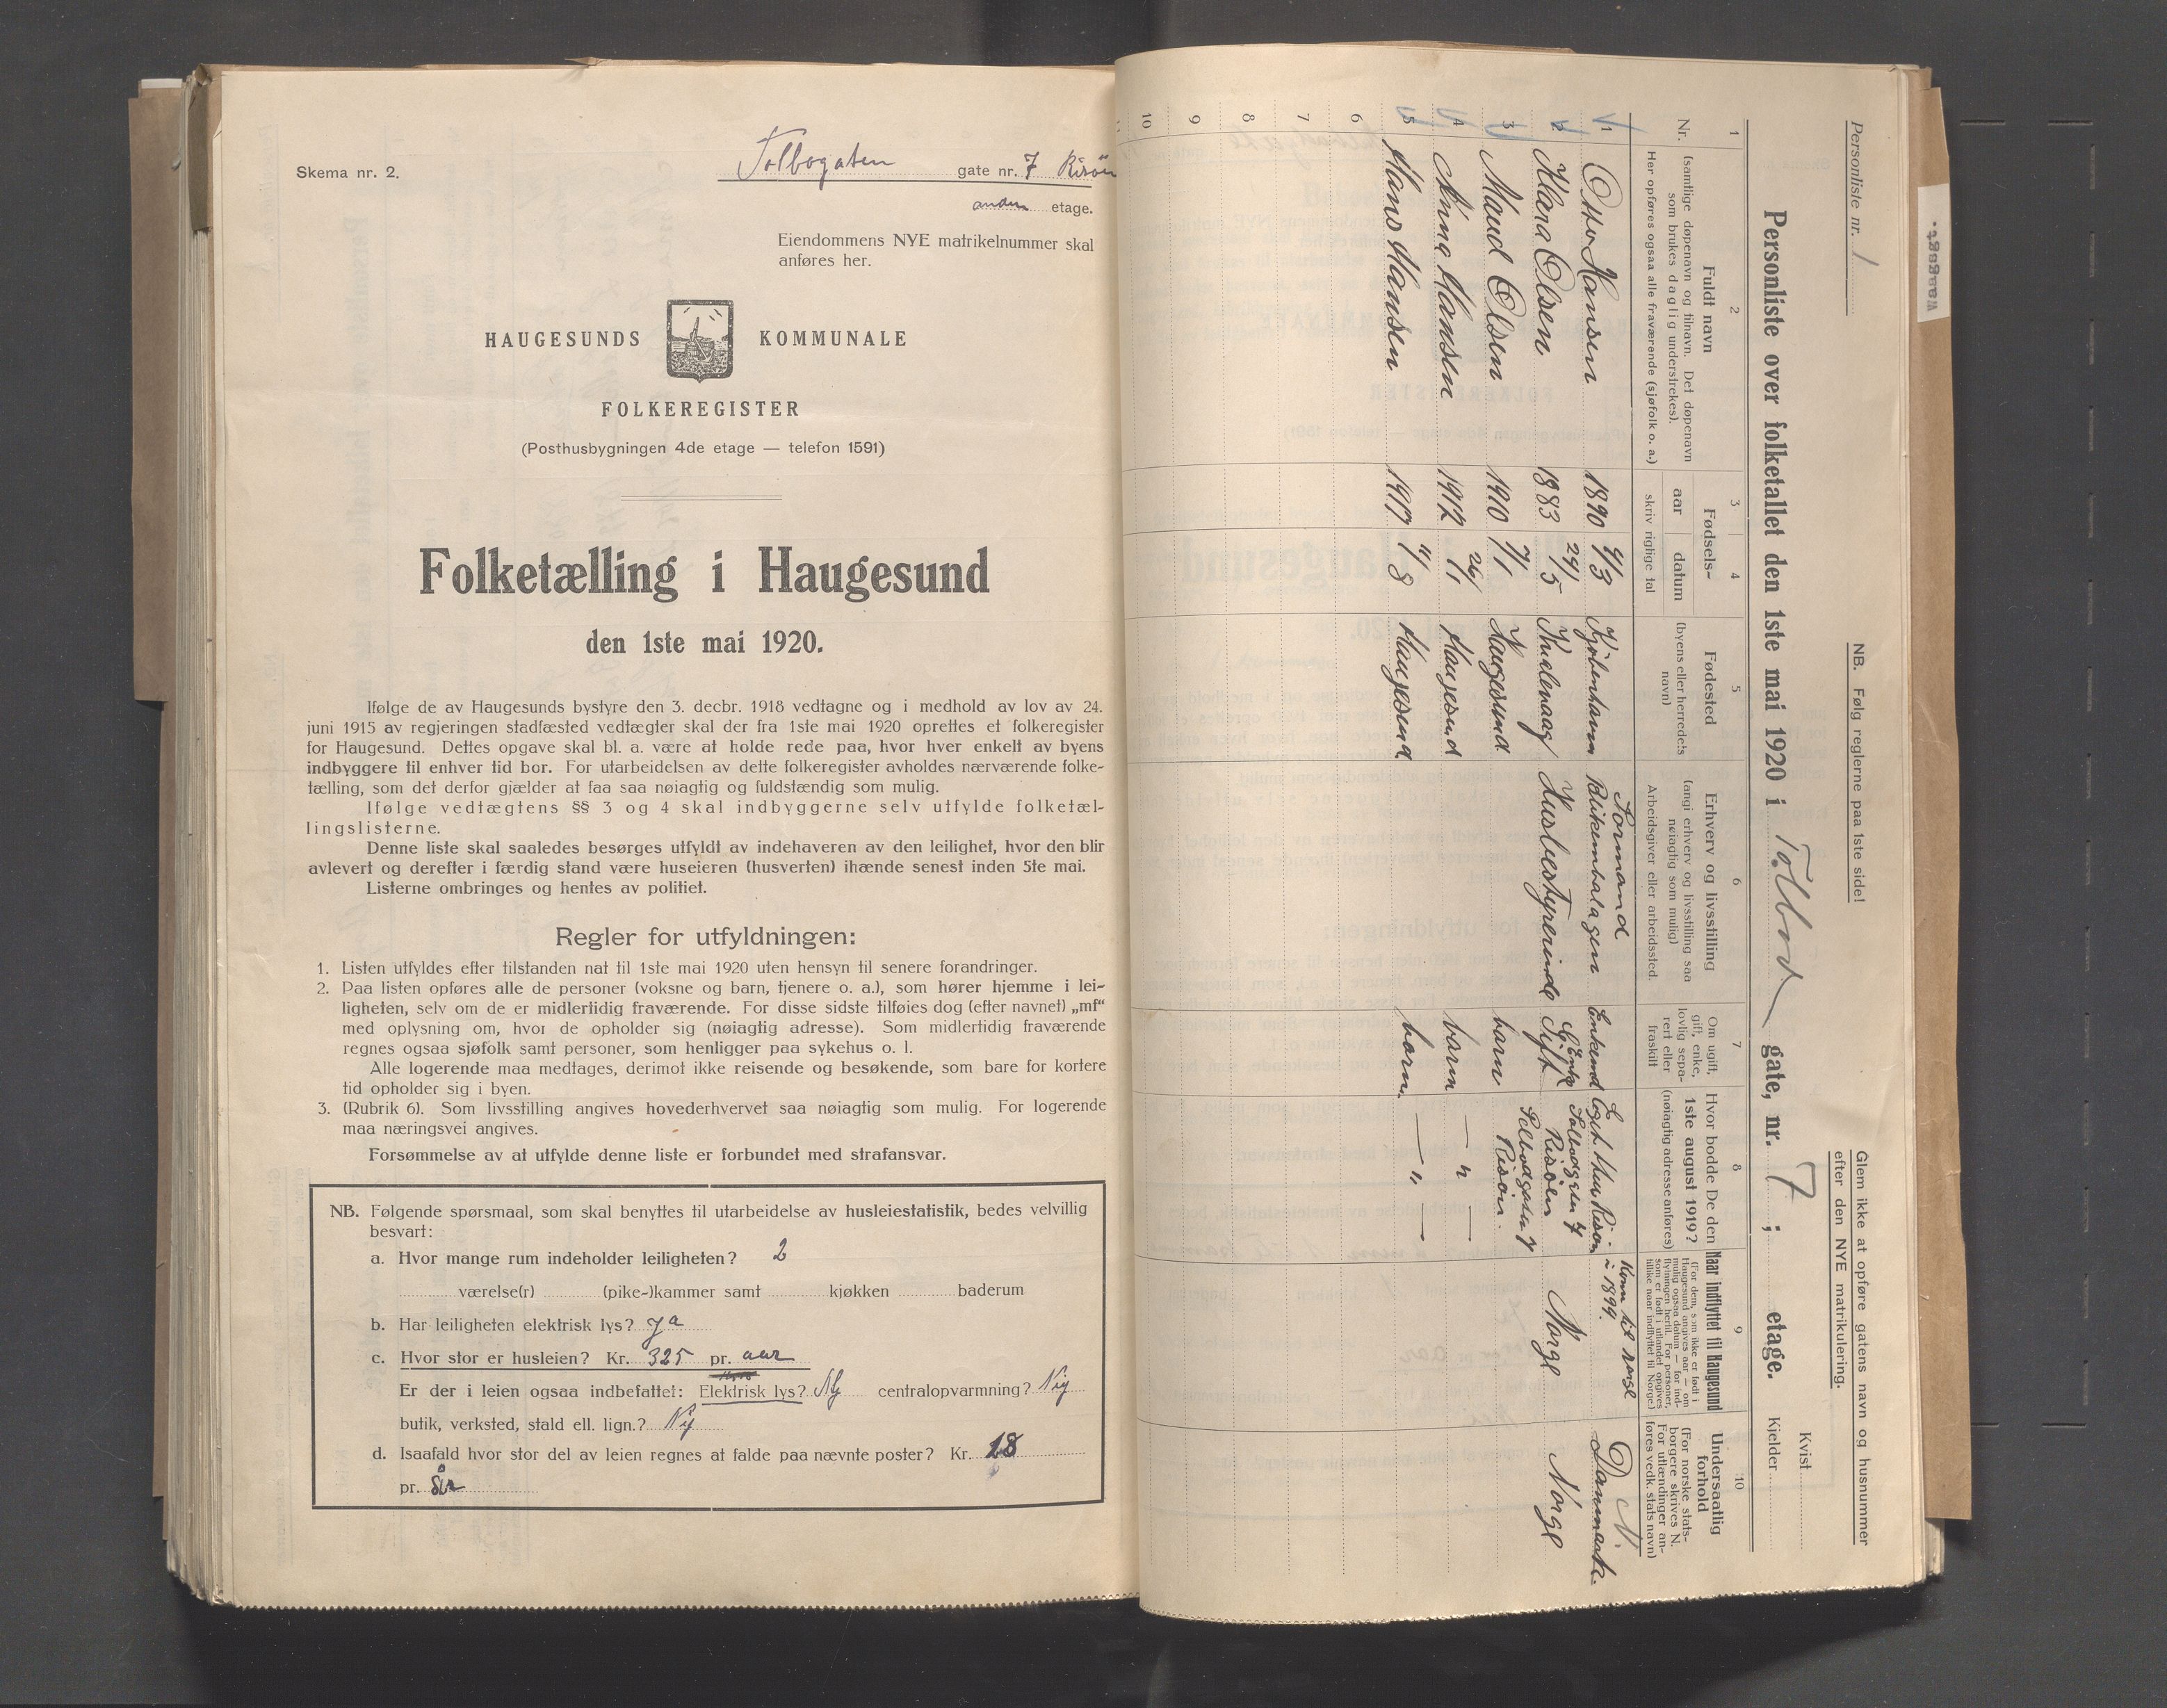 Skema nr. 2.
Tolbogaten gate nr. 7 Risöen
anden etage.
Eiendommens NYE matrikelnummer skal
anføres her.
HAUGESUNDS KOMMUNALE
FOLKEREGISTER
(Posthusbygningen 4de etage — telefon 1591)
Folketælling i Haugesund
den 1ste mai 1920.
Ifølge de av Haugesunds bystyre den 3. decbr. 1918 vedtagne og i medhold av lov av 24.
juni 1915 av regjeringen stadfæsted vedtægter skal der fra 1ste mai 1920 oprettes et folkeregister
for Haugesund. Dettes opgave skal bl. a. være at holde rede paa, hvor hver enkelt av byens
indbyggere til enhver tid bor. For utarbeidelsen av dette folkeregister avholdes nærværende folke-
tælling, som det derfor gjælder at faa saa nøiagtig og fuldstændig som mulig.
Ifølge vedtægtens §§ 3 og 4 skal indbyggerne selv utfylde folketæl-
lingslisterne.
Denne liste skal saaledes besørges utfyldt av indehaveren av den leilighet, hvor den blir
avlevert og derefter i færdig stand være huseieren (husverten) ihænde senest inden 5te mai.
Listerne ombringes og hentes av politiet.
Regler for utfyldningen:
1. Listen utfyldes efter tilstanden nat til 1ste mai 1920 uten hensyn til senere forandringer.
2. Paa listen opføres alle de personer (voksne og barn, tjenere o. a.), som hører hjemme i lei-
ligheten, selv om de er midlertidig fraværende. For disse sidste tilføies dog (efter navnet) „mf“
med oplysning om, hvor de opholder sig (nøiagtig adresse). Som midlertidig fraværende
regnes ogsaa sjøfolk samt personer, som henligger paa sykehus o. l.
Alle logerende maa medtages, derimot ikke reisende og besøkende, som bare for kortere
tid opholder sig i byen.
3. (Rubrik 6). Som livsstilling angives hovederhvervet saa nøiagtig som mulig. For logerende
maa næringsvei angives.
Forsømmelse av at utfylde denne liste er forbundet med strafansvar.
NB. Følgende spørsmaal, som skal benyttes til utarbeidelse av husleiestatistik, bedes velvillig
besvart:
a. Hvor mange rum indeholder leiligheten? 2
værelse(r) (pike-)kammer samt kjøkken baderum
b. Har leiligheten elektrisk lys? Ja
c. Hvor stor er husleien? Kr. 325 pr. aar
Er der i leien ogsaa indbefattet: Elektrisk lys? Nej centralopvarmning? Nej
butik, verksted, stald ell. lign.? Nej
d. Isaafald hvor stor del av leien regnes at falde paa nævnte poster? Kr. 18
pr. år
Personliste nr. 1
NB. Følg reglerne paa 1ste side!
Glem ikke at opføre gatens navn og husnummer
efter den NYE matrikulering.
Personliste over folketallet den 1ste mai 1920 i Tolbod gate, nr. 7 ; etage.
Kvist
Kjelder
1 2 3 4 5 6 7 8 9 10
Nr.
Fuldt navn
(samtlige døpenavn og tilnavn. Det døpenavn
som brukes daglig understrekes).
Her opføres ogsaa alle fraværende (sjøfolk o. a.)
Fødsels-
aar datum
skriv rigtige tal
Fødested
(byens eller herredets
navn)
Erhverv og livsstilling
(angi erhverv og livsstilling saa
nøiagtig som mulig)
Arbeidsgiver eller arbeidssted.
Om ugift,
gift, enke,
lovlig sepa-
rert eller
fraskilt
Hvor bodde De den
1ste august 1919?
(nøiagtig adresse anføres)
Naar indflyttet til Haugesund
(For dem, som ikke er født i
Haugesund angives aar — om
mulig ogsaa datum — for ind-
flytningen hertil. For personer,
som er født i utlandet opgives
tillike naar indflyttet til Norge.)
Undersaatlig
forhold
(For norske stats-
borgere skrives N.
For utlændinger an-
føres vedk. stats navn)
1 Otto Hansen 1890 4/3 Kjöbenhavn Formand Blikembalagen Enkemd Logst. Hus Risöen Kom til Norge i 1899. Danmark. N.
2 Klara Olsen 1883 29/5 Skudenaag Husbestyrerinde Gift Enke Tolbodgaten 7 Risöen Norge Norge
3 Maud Olsen 1910 7/1 Haugesund barn Tolbodgaten 7 Risöen.
4 Anna Hansen 1912 26/1 Haugesund barn — " —
5 Hans Hansen 1917 11/8 Haugesund barn. — " —
6
7
8
9
10
Waagegt.